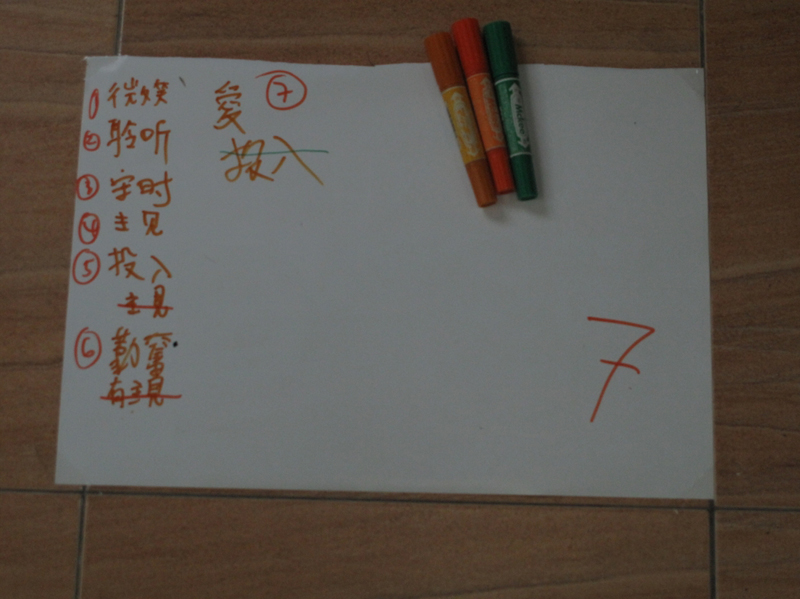 ① 微笑
② 聆听
③ 守时
④ 主见
⑤ 投入
主見
⑥ 勤奮
有主見
愛 ⑦
投入
7